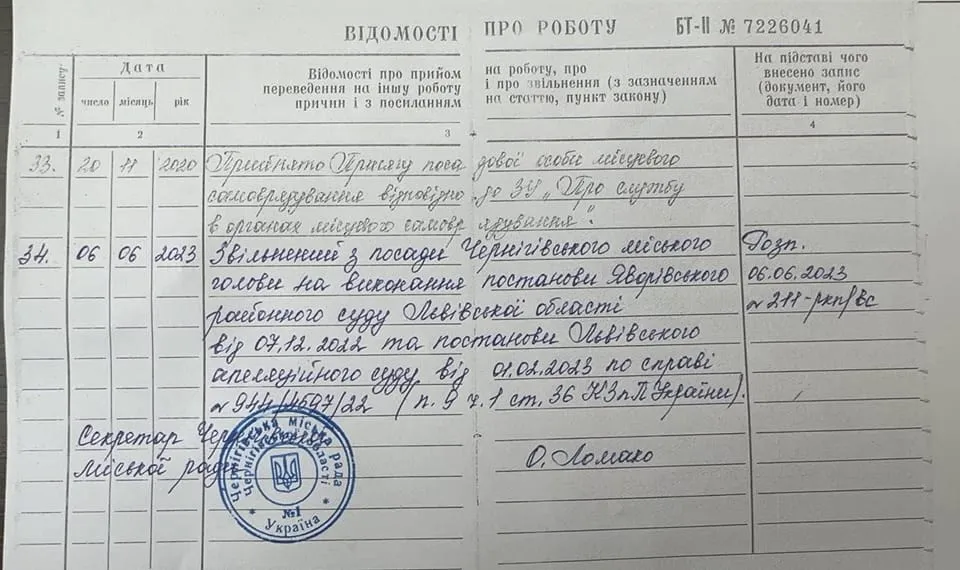 ВІДОМОСТІ ПРО РОБОТУ БТ-ІІ № 7226041
№ запису
Дата
число місяць рік
Відомості про прийом
переведення на іншу роботу
причин і з посиланням
на роботу, про
і про звільнення (з зазначенням
на статтю, пункт закону)
На підставі чого
внесено запис
(документ, його
дата і номер)
1 2 3 4
33. 20 11 2020 Прийнято Присягу посадової особи місцевого
самоврядування відповідно до ЗУ „Про службу
в органах місцевого самоврядування".
34. 06 06 2023 Звільнений з посади Чернігівського міського Розп.
голови на виконання постанови Яворівського 06.06.2023
районного суду Львівської області № 211-ркп/вс
від 07.12.2022 та постанови Львівського
апеляційного суду від 01.02.2023 по справі
№ 944/4597/22 (п. 9 ч. 1 ст. 36 КЗпП України).
Секретар
міської ради О. Ломако
Чернігівська міська рада
Чернігівської області
№1
* Україна *